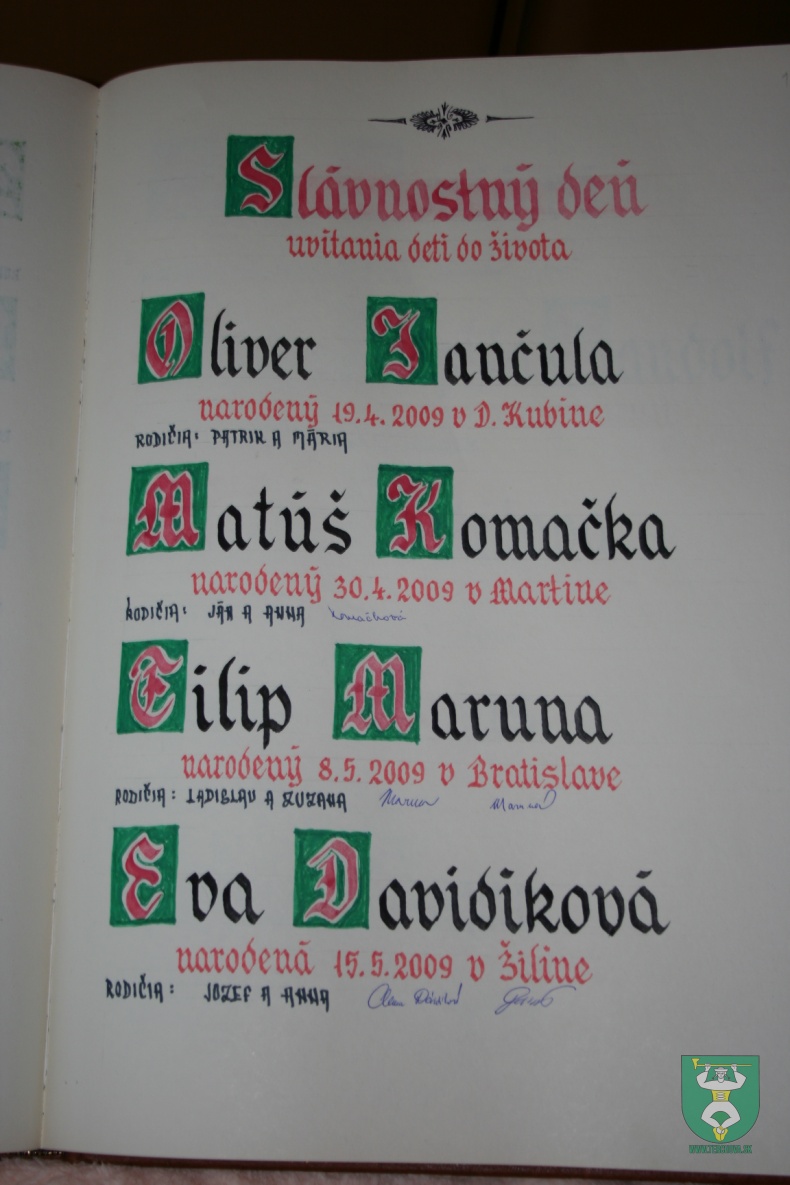 Slávnostný deň
uvítania detí do života
Oliver Jančula
narodený 19.4.2009 v D. Kubíne
RODIČIA: PATRIK A MÁRIA
Matúš Komačka
narodený 30.4.2009 v Martine
RODIČIA: JÁN A ANNA Komačková
Filip Maruna
narodený 8.5.2009 v Bratislave
RODIČIA: LADISLAV A ZUZANA
Eva Davidíková
narodená 15.5.2009 v Žiline
RODIČIA: JOZEF A ANNA
WWW.TERCHOVA.SK